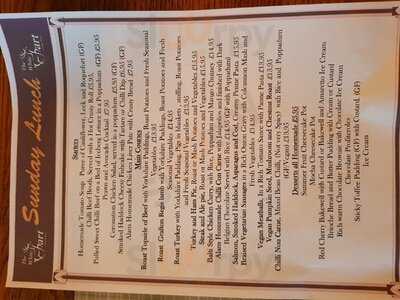 The White Hart
Sunday Lunch
The White Hart
Starters
Homemade Tomato Soup Potted Cauliflower, Leek and Roquefort (GF)
Chilli Beef Bowls, Served with a Hot Crusty Roll £5.95,
Pulled Sweet Chilli Beef on a bed of Iceberg Lettuce in a Poppadom (GF) £5.95
Prawn and Avocado Cocktail £7.95
Coronation Chicken and Mango £5.95 (GF)
Smoked Haddock Cheesy Fishcake with Tartare or Chilli Dip £6.95 (GF)
Alans Homemade Chicken Liver Pate and Crusty Bread £7.95
Main Courses
Roast Topside of Beef with Yorkshire Puddings, Roast Potatoes and Fresh Seasonal
Vegetables £15.95
Roast Grafton Regis lamb with Yorkshire Puddings, Roast Potatoes and Fresh
Roast Turkey with Yorkshire Pudding, Pigs in blanket, stuffing, Roast Potatoes
and Fresh Seasonal £15.95
Turkey and Ham Pie, Roast or Mash Potatoes and Vegetables £15.95
Steak and Ale pie, Roast or Mash Potatoes and Vegetables £15.95
Balti Style Chicken Curry, with Rice, Poppadom and Mango Chutney £14.95
Alans Homemade Chilli Con Carne with Jalapenos and finished with Dark
Belgian Chocolate Served with Rice £14.95 (GF with Poppadom)
Salmon, Smoked Haddock, Asparagus and Cod, Creamy Penne Pasta £15.95
Braised Vegetarian Sausages in a Rich Onion Gravy with Colcannon Mash and
Vegetables £13.95
Vegan Meatballs, In a Rich Tomato Sauce with Penne Pasta £13.95
Vegan Pumpkin, Seed, Mushroom and Chestnut Roast £13.95
Chilli Non Carne, Mixed Bean Chilli, (Not very Spicy) with Rice and Poppadom
(GF)(Vegan) £13.95
Desserts all Homemade £5.95
Summer Fruit Cheesecake Pot
Mocha Cheesecake Pot
Red Cherry Bakewell with Custard or Bakewell and Amaretto Ice Cream
Brioche Bread and Butter Pudding with Cream or Custard
Rich warm Chocolate Brownie with Chocolate Ice Cream
Chocolate Profiteroles
Sticky Toffee Pudding (GF) with Custard (GF)
Ice Cream